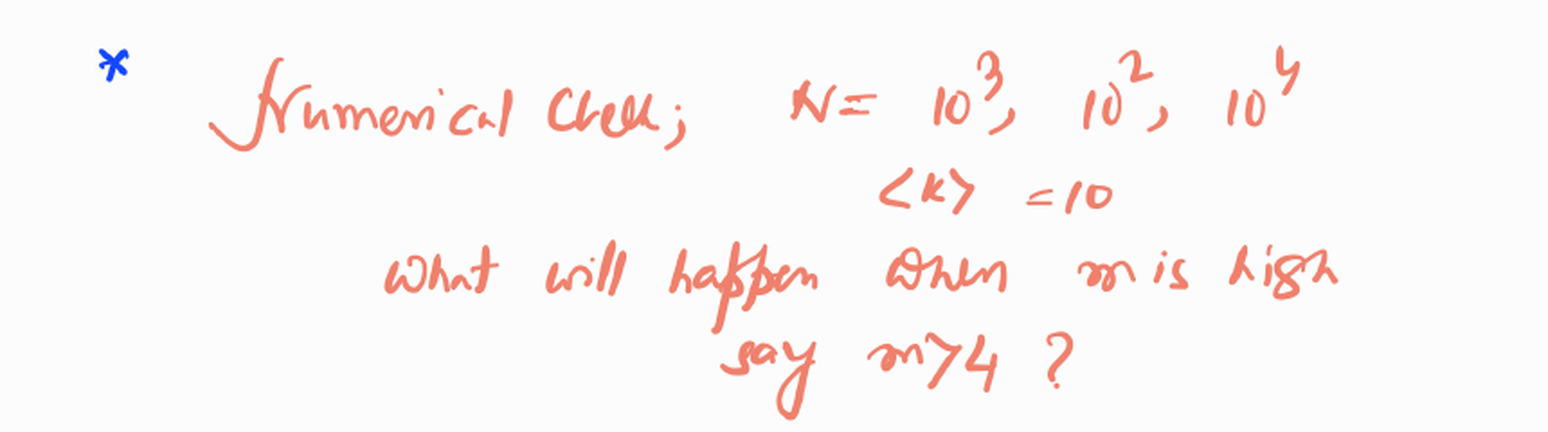 * Numerical Check; N = 10³, 10², 10⁴
<k> = 10
what will happen when m is high
say m>4 ?